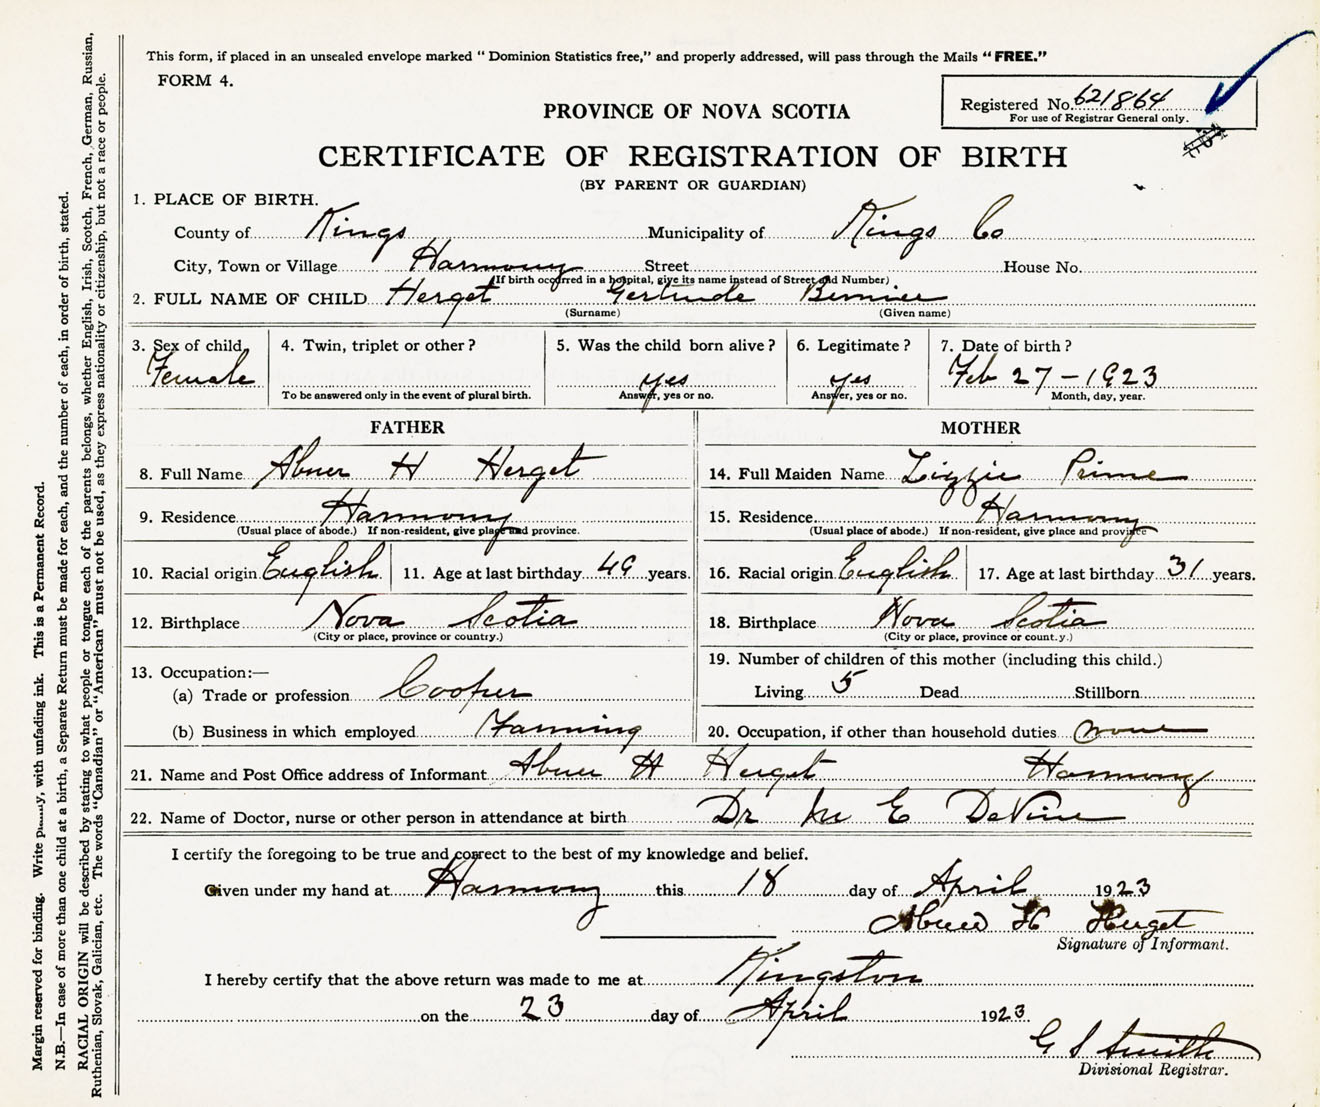 This form, if placed in an unsealed envelope marked "Dominion Statistics free," and properly addressed, will pass through the Mails "FREE."
FORM 4.
Registered No. 621864
For use of Registrar General only.
PROVINCE OF NOVA SCOTIA
CERTIFICATE OF REGISTRATION OF BIRTH
(BY PARENT OR GUARDIAN)
1. PLACE OF BIRTH.
County of Kings Municipality of Kings Co
City, Town or Village Harmony Street House No.
(If birth occurred in a hospital, give its name instead of Street and Number)
2. FULL NAME OF CHILD Herget Gertrude Bernice
(Surname) (Given name)
3. Sex of child 4. Twin, triplet or other? 5. Was the child born alive? 6. Legitimate? 7. Date of birth?
Female yes yes Feb 27 - 1923
To be answered only in the event of plural birth. Answer, yes or no. Answer, yes or no. Month, day, year.
FATHER
8. Full Name Abner H Herget
9. Residence Harmony
(Usual place of abode.) If non-resident, give place and province.
10. Racial origin English 11. Age at last birthday 49 years.
12. Birthplace Nova Scotia
(City or place, province or country.)
13. Occupation:—
(a) Trade or profession Cooper
(b) Business in which employed Farming
MOTHER
14. Full Maiden Name Lizzie Prime
15. Residence Harmony
(Usual place of abode.) If non-resident, give place and province
16. Racial origin English 17. Age at last birthday 31 years.
18. Birthplace Nova Scotia
(City or place, province or count.y.)
19. Number of children of this mother (including this child.)
Living 5 Dead Stillborn
20. Occupation, if other than household duties none
21. Name and Post Office address of Informant Abner H Herget Harmony
22. Name of Doctor, nurse or other person in attendance at birth Dr M E DeVine
I certify the foregoing to be true and correct to the best of my knowledge and belief.
Given under my hand at Harmony this 18 day of April 1923
Abner H Herget
Signature of Informant.
I hereby certify that the above return was made to me at Kingston
on the 23 day of April 1923
G S Smith
Divisional Registrar.
Margin reserved for binding. Write plainly, with unfading ink. This is a Permanent Record.
N.B.—In case of more than one child at a birth, a Separate Return must be made for each, and the number of each, in order of birth, stated.
RACIAL ORIGIN will be described by stating to what people or tongue each of the parents belongs, whether English, Irish, Scotch, French, German, Russian,
Ruthenian, Slovak, Galician, etc. The words "Canadian" or "American" must not be used, as they express nationality or citizenship, but not a race or people.